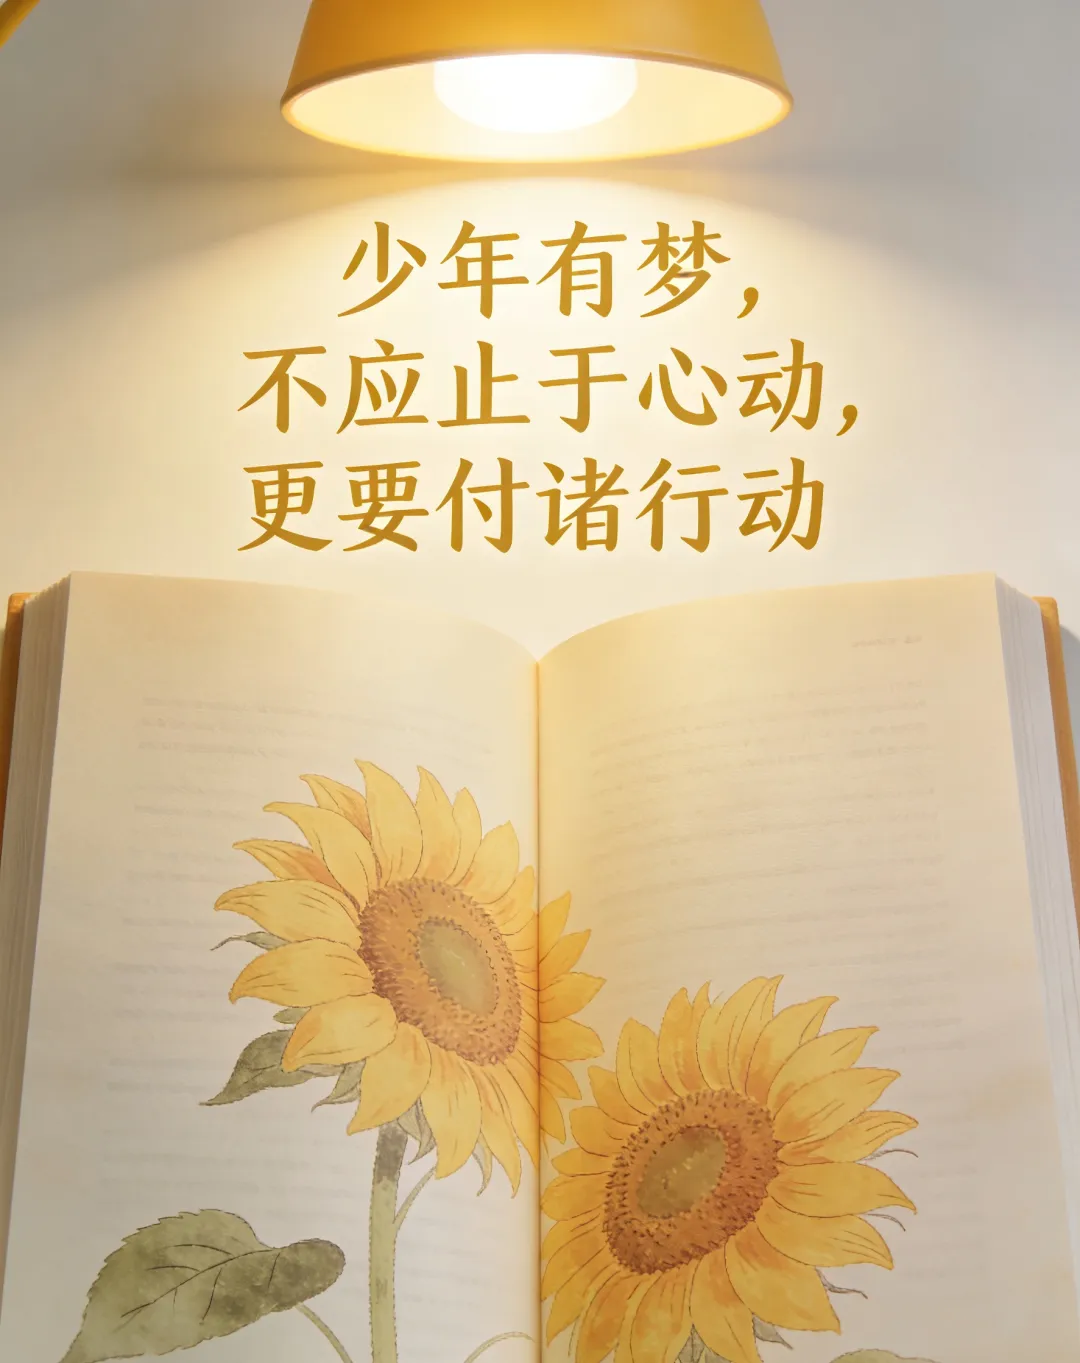 少年有梦，
不应止于心动，
更要付诸行动